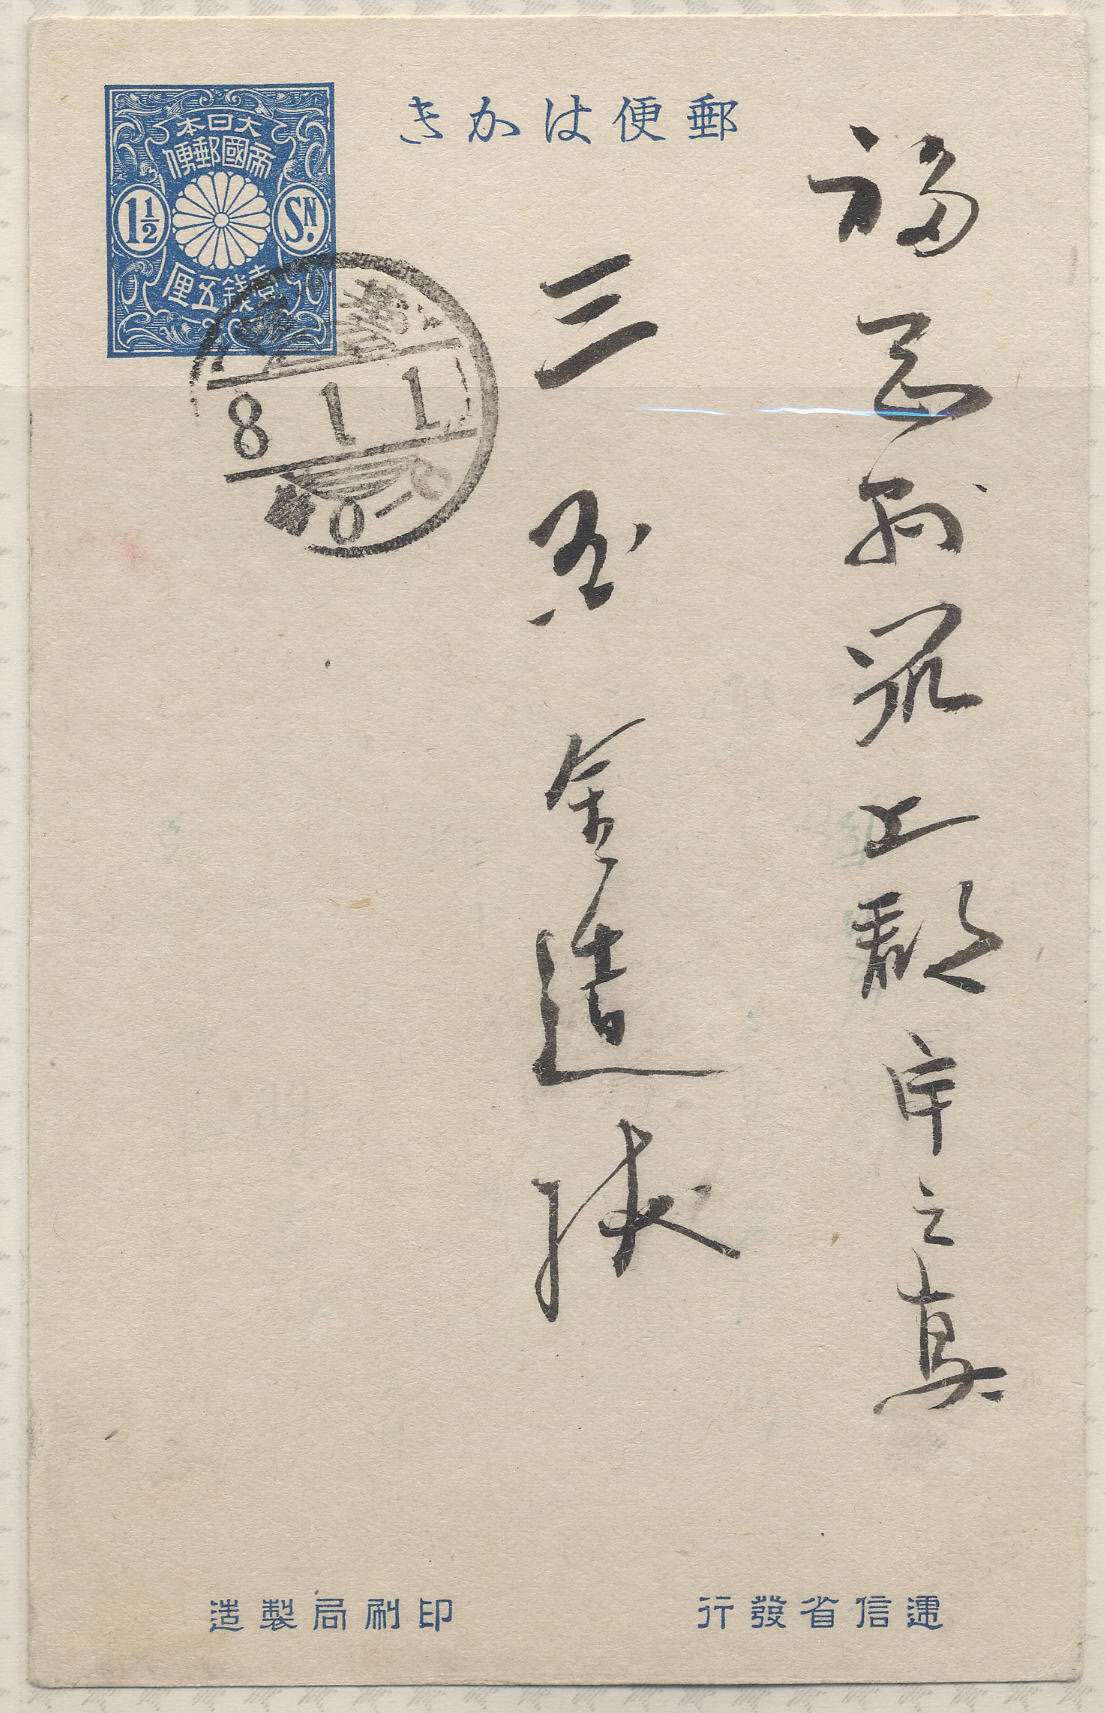 郵便はかき
大日本
帝國郵便
1½ SN.
壹錢五厘
8 1 1
福岡縣築上郡宇之島
三 金造様
遞信省發行
印刷局製造